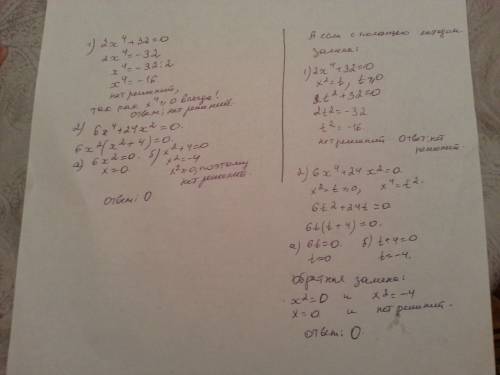 1) 2x⁴+32=0
2x⁴=-32
x⁴=-32:2
x⁴=-16
нет решений,
так как x⁴≥0 всегда!
ответ: нет решений.
2) 6x⁴+24x²=0.
6x²(x²+4)=0.
а) 6x²=0. б) x²+4=0
x=0. x²=-4
x²≥0, поэтому
нет решений.
ответ: 0
А если с помощью методом
замена:
1) 2x⁴+32=0
x²=t, t≥0
2t²+32=0
2t²=-32
t²=-16
нет решений ответ: нет
решений.
2) 6x⁴+24x²=0.
x²=t≥0, x⁴=t².
6t²+24t=0.
6t(t+4)=0.
а) 6t=0. б) t+4=0
t=0 t=-4.
обратная замена:
x²=0 и x²=-4
x=0 и нет решений.
ответ: 0.